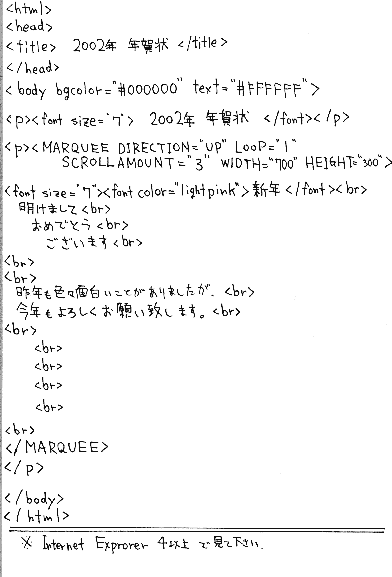 <html>
<head>
<title> 2002年 年賀状 </title>
</head>
<body bgcolor="#000000" text="#FFFFFF">
<p><font size="7"> 2002年 年賀状 </font></p>
<p><MARQUEE DIRECTION="UP" LOOP="1"
SCROLLAMOUNT="3" WIDTH="700" HEIGHT="300">
<font size="7"><font color="lightpink">新年</font><br>
明けまして<br>
おめでとう<br>
ございます<br>
<br>
<br>
昨年も色々面白いことがありましたが、<br>
今年もよろしくお願い致します。<br>
<br>
<br>
<br>
<br>
<br>
<br>
</MARQUEE>
</p>
</body>
</html>
※ Internet Exprorer 4以上 で見て下さい.